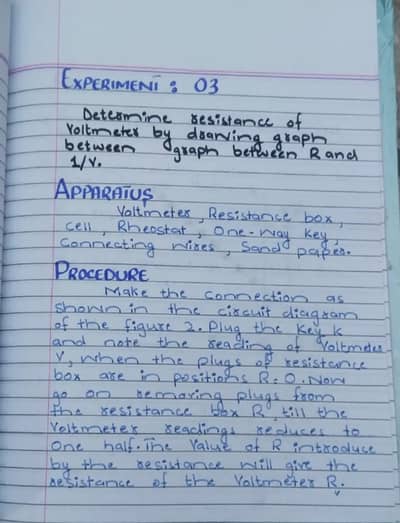 EXPERIMENT : 03
Determine resistance of
Voltmeter by drawing graph
between graph between R and
1/V.
APPARATUS
Voltmeter, Resistance box,
cell, Rheostat, One-way key,
Connecting wires, Sand paper.
PROCEDURE
Make the connection as
shown in the circuit diagram
of the figure 2. Plug the key K
and note the reading of Voltmeter
V, when the plugs of resistance
box are in positions R=0. Now
go on removing plugs from
the resistance box R, till the
Voltmeter readings reduces to
One half. The Value of R introduce
by the resistance will give the
resistance of the Voltmeter Rv.